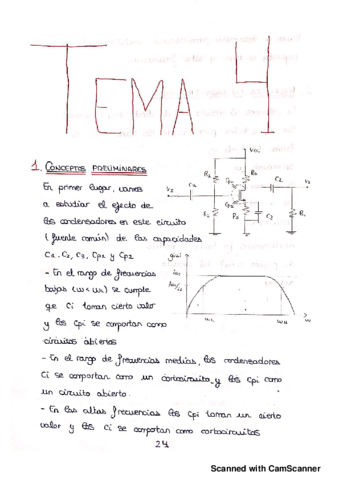 TEMA 4
1. CONCEPTOS PRELIMINARES
En primer lugar, vamos
a estudiar el efecto de
los condensadores en este circuito
(fuente común) de las capacidades
C1, C2, C3, Cp1 y Cp2
- En el rango de frecuencias
bajas (w < wL) se cumple
que Ci toman cierto valor
y los Cpi se comportan como
circuitos abiertos
- En el rango de frecuencias medias, los condensadores
Ci se comportan como un cortocircuito y los Cpi como
un circuito abierto.
- En las altas frecuencias los Cpi toman un cierto
valor y los Ci se comportan como cortocircuitos
24
Scanned with CamScanner